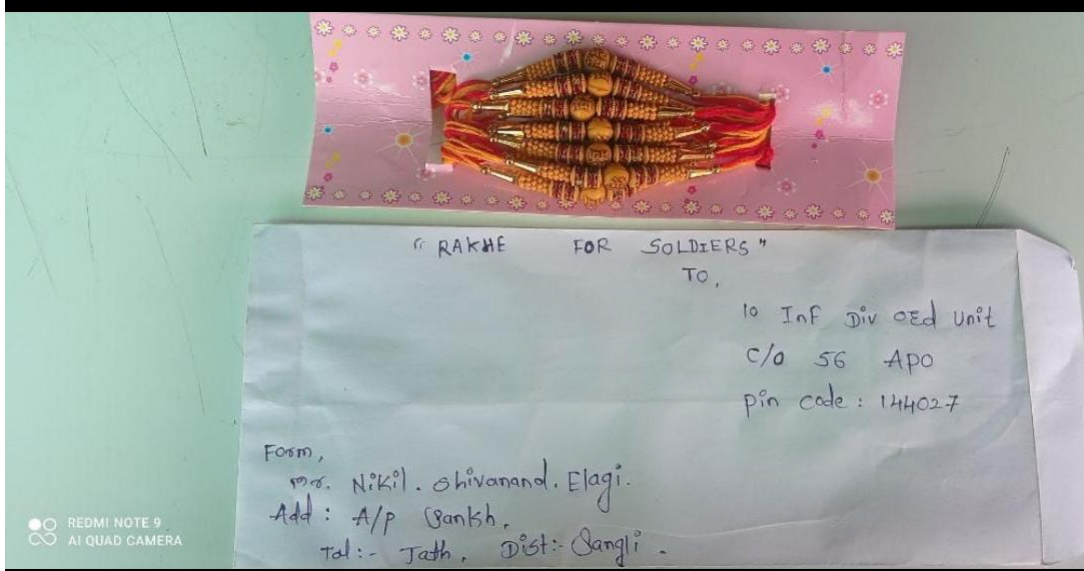 "RAKHE FOR SOLDIERS"
TO,
10 Inf Div OEd Unit
C/o 56 Apo
Pin code : 144027
Form,
mr. Nikil. Shivanand. Elagi.
Add : A/p Sankh,
Tal :- Jath, Dist :- Sangli.
REDMI NOTE 9
AI QUAD CAMERA